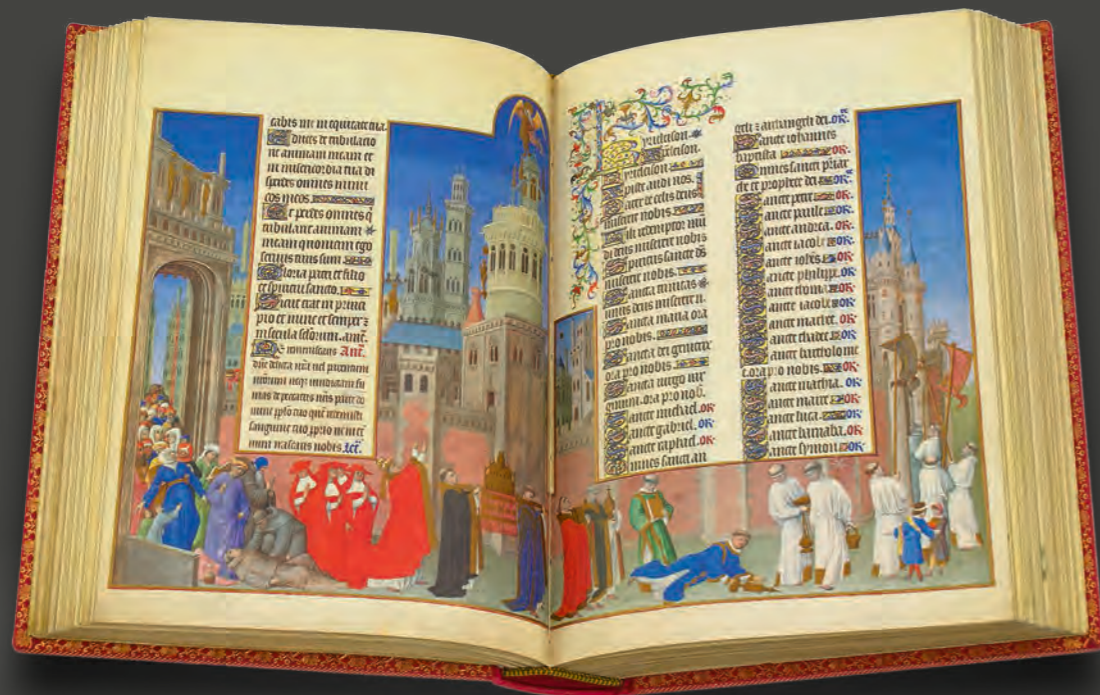 cabis me in equitate tua.
Educes de tribulacio
ne animam meam et
in misericordia tua di
sperdes omnes inimi
cos meos
Et perdes omnes q
tribulant animam
meam quoniam ego
seruus tuus sum
Gloria patri et filio
et spiritui sancto.
Sicut erat in princi
pio et nunc et semper z
in secula amē.
Ne reminiscaris Añ.
dñe delicta nrā uel parentum
nostrorum neqz uindictam su
mas de peccatis nris parce do
mine pplo tuo quē redemisti
sanguine tuo pprio ne in
num irascaris nobis
Kyrieleison
Xpeleison.
Kyrieleison
Xpiste audi nos.
Pater de celis deus
miserere nobis
Fili redemptor mūdi
deus miserere nobis
Spiritus sancte ds
miserere nobis.
Sancta trinitas
unus deus miserere n.
Sancta maria ora
pro nobis.
Sancta dei genetrix
ora pro nobis
Sancta uirgo uir
ginum. ora pro nob.
Sancte michael. OR
Sancte gabriel. OR
Sancte raphael. OR
Omnes sancti an
geli z archangeli dei. OR.
Sancte iohannes
baptista OR.
Omnes sancti priar
che et prophete dei OR.
Sancte petre OR.
Sancte paule OR.
Sancte andrea. OR.
Sancte iacobe OR.
Sancte iohēs OR.
Sancte philippe. OR
Sancte thoma OR.
Sancte iacobe OR
Sancte mathee. OR
Sancte thadee OR.
Sancte bartholome
e. ora pro nobis. OR
Sancte mathia. OR
Sancte marce OR
Sancte luca. OR
Sancte barnaba. OR
Sancte symon OR